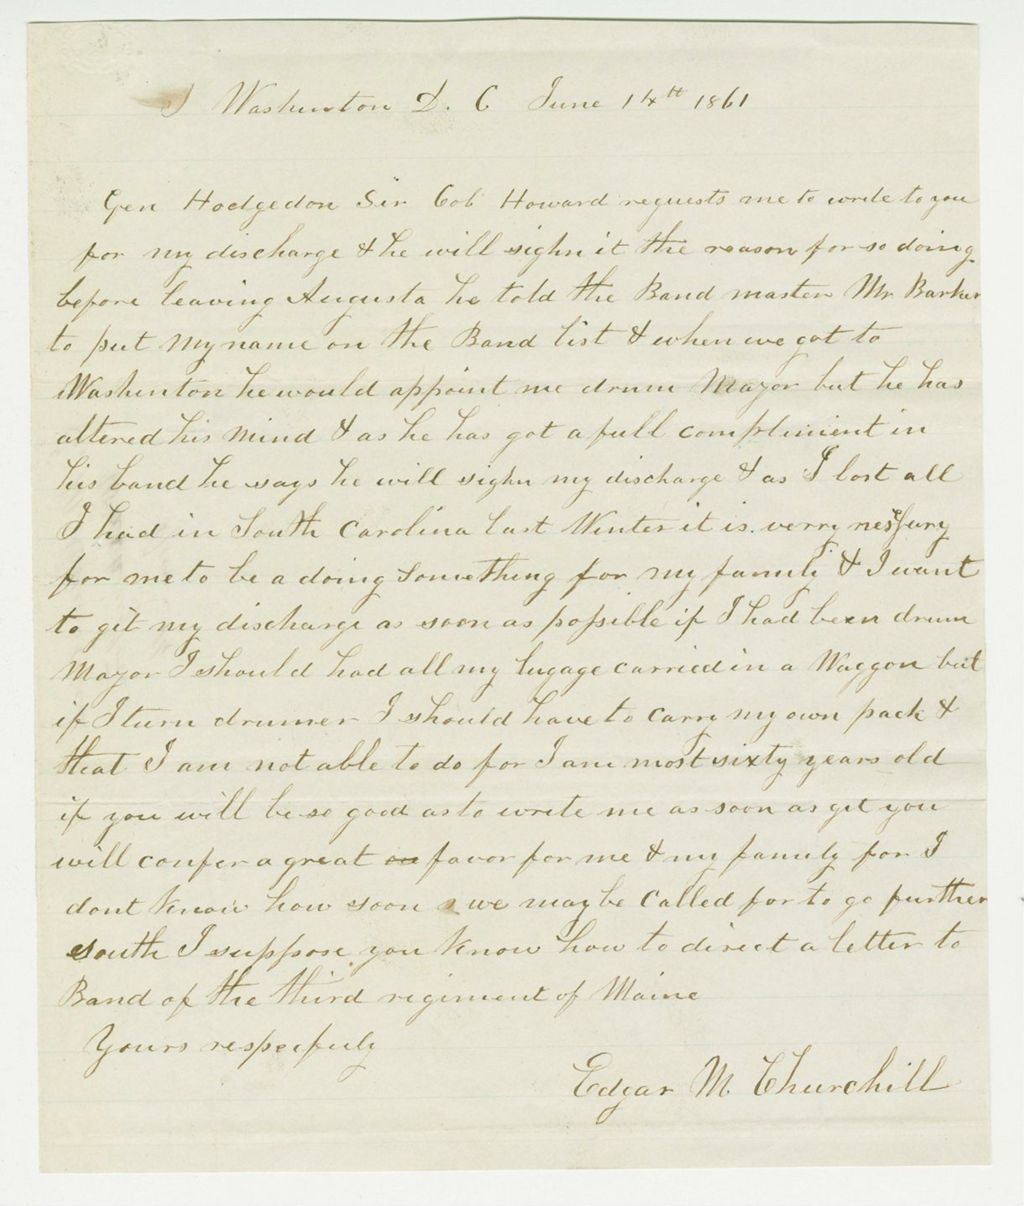 Washinton D. C June 14th 1861
Gen Hodgedon Sir Col Howard requests me to write to you
for my discharge & he will sighn it the reason for so doing
before leaving Augusta he told the Band master Mr Barker
to put my name on the Band list & when we got to
Washinton he would appoint me drum Mayor but he has
altered his mind & as he has got a full compliment in
his band he says he will sighn my discharge & as I lost all
I had in South Carolina last Winter it is verry
for me to be a doing something for my family & I want
to git my discharge as soon as possible if I had been drum
Mayor I should had all my lugage carried in a Waggon but
if I turn drumer I should have to carry my own pack &
that I am not able to do for I am most sixty years old
if you will be so good as to write me as soon as git you
will confer a great favor for me & my family for I
dont know how soon we may be called for to go further
south I suppose you know how to direct a letter to
Band of the third regiment of Maine
Yours respecfuly
Edgar M. Churchill